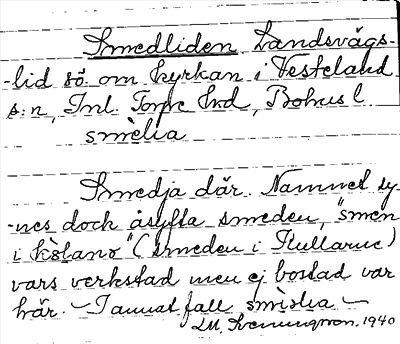 Smedliden Landsvägs-
-lid sö om kyrkan i Vesteland
s:n, Inl. Torpe hrd, Bohus l
smèlia
Smedja där. Namnet sy-
-nes dock åsyfta smeden, "smen
i (smeden i Hullarne)
vars verkstad men ej bostad var
här. – I annat fall –
1940